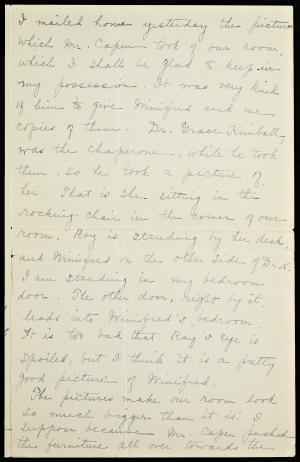 I mailed home yesterday the pictures
which Mr. Capen took of our room,
which I shall be glad to keep in
my possession. It was very kind
of him to give Winifred and me
copies of them. Dr. Grace Kimball,
was the chaperone, while he took
them, so he took a picture of
her. That is she sitting in the
rocking-chair in the corner of our
room. Ray is standing by her desk,
and Winifred on the other side of Dr. K.
I am standing in my bedroom
door. The other door, right by it,
leads into Winifred's bedroom.
It is too bad that Ray's eye is
spoiled, but I think it is a pretty
good picture of Winifred.
The pictures make our room look
so much bigger than it is. I
suppose because Mr. Capen pushed
the furniture all over towards the